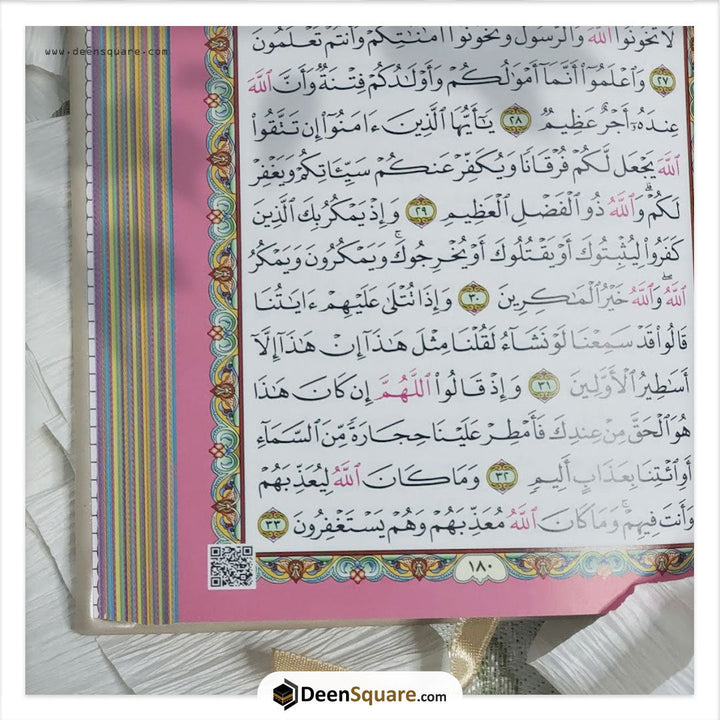 www.deensquare.com
لَا تَخُونُوا۟ ٱللَّهَ وَٱلرَّسُولَ وَتَخُونُوٓا۟ أَمَٰنَٰتِكُمْ وَأَنتُمْ تَعْلَمُونَ
٢٧ وَٱعْلَمُوٓا۟ أَنَّمَآ أَمْوَٰلُكُمْ وَأَوْلَٰدُكُمْ فِتْنَةٌ وَأَنَّ ٱللَّهَ
عِندَهُۥٓ أَجْرٌ عَظِيمٌ ٢٨ يَٰٓأَيُّهَا ٱلَّذِينَ ءَامَنُوٓا۟ إِن تَتَّقُوا۟
ٱللَّهَ يَجْعَل لَّكُمْ فُرْقَانًا وَيُكَفِّرْ عَنكُمْ سَيِّـَٔاتِكُمْ وَيَغْفِرْ
لَكُمْ ۗ وَٱللَّهُ ذُو ٱلْفَضْلِ ٱلْعَظِيمِ ٢٩ وَإِذْ يَمْكُرُ بِكَ ٱلَّذِينَ
كَفَرُوا۟ لِيُثْبِتُوكَ أَوْ يَقْتُلُوكَ أَوْ يُخْرِجُوكَ ۚ وَيَمْكُرُونَ وَيَمْكُرُ
ٱللَّهُ ۖ وَٱللَّهُ خَيْرُ ٱلْمَٰكِرِينَ ٣٠ وَإِذَا تُتْلَىٰ عَلَيْهِمْ ءَايَٰتُنَا
قَالُوا۟ قَدْ سَمِعْنَا لَوْ نَشَآءُ لَقُلْنَا مِثْلَ هَٰذَآ ۙ إِنْ هَٰذَآ إِلَّآ
أَسَٰطِيرُ ٱلْأَوَّلِينَ ٣١ وَإِذْ قَالُوا۟ ٱللَّهُمَّ إِن كَانَ هَٰذَا
هُوَ ٱلْحَقَّ مِنْ عِندِكَ فَأَمْطِرْ عَلَيْنَا حِجَارَةً مِّنَ ٱلسَّمَآءِ
أَوِ ٱئْتِنَا بِعَذَابٍ أَلِيمٍ ٣٢ وَمَا كَانَ ٱللَّهُ لِيُعَذِّبَهُمْ
وَأَنتَ فِيهِمْ ۚ وَمَا كَانَ ٱللَّهُ مُعَذِّبَهُمْ وَهُمْ يَسْتَغْفِرُونَ ٣٣
١٨٠
DeenSquare.com